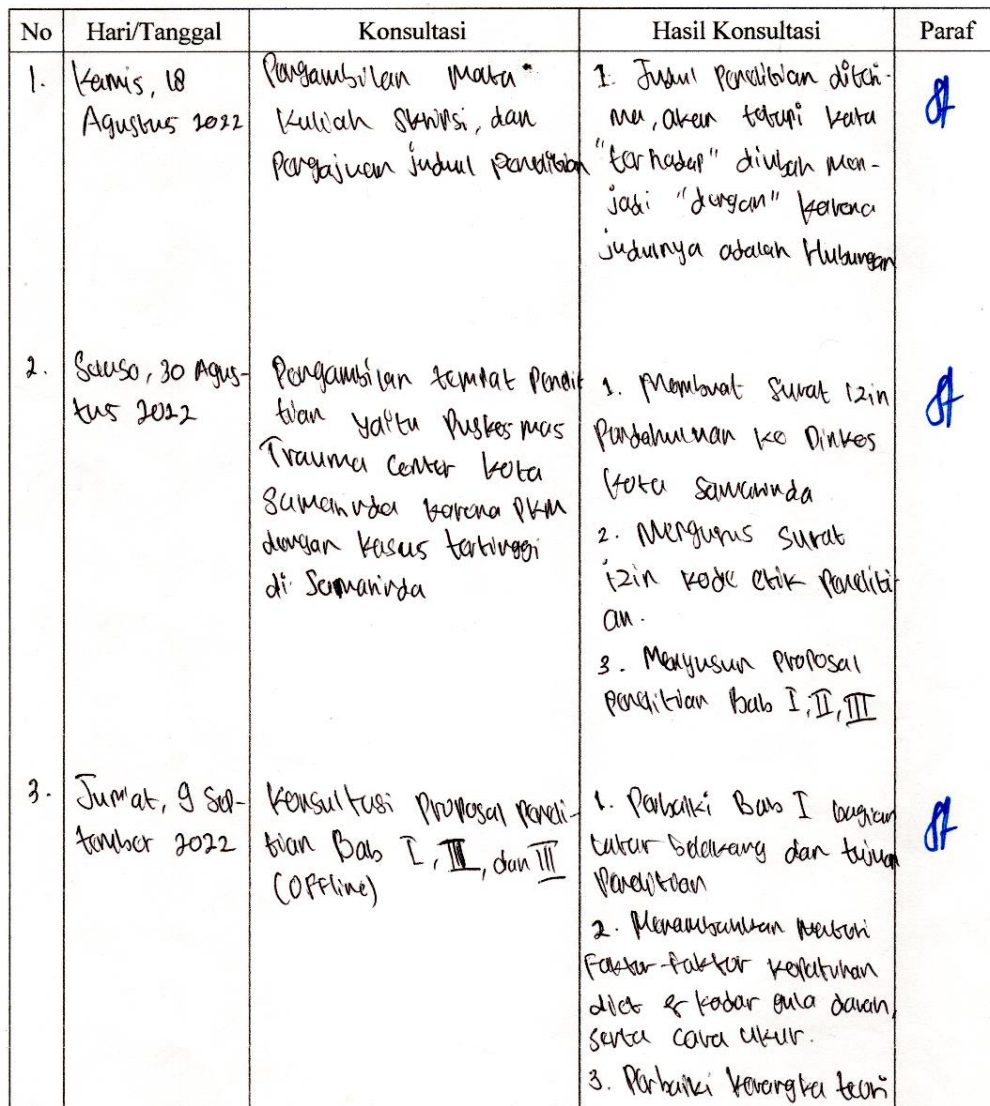 No Hari/Tanggal Konsultasi Hasil Konsultasi Paraf
1. Kamis, 18
Agustus 2022
Pengambilan Mata
Kuliah Skripsi, dan
Pengajuan judul penelitian
1. Judul Penelitian diteri-
ma, akan tetapi kata
"terhadap" diubah men-
jadi "dengan" karena
judulnya adalah Hubungan
2. Selasa, 30 Agus-
tus 2022
Pengambilan tempat Penelit
tian yaitu Puskesmas
Trauma Center Kota
Samarinda karena PKM
dengan kasus tertinggi
di Samarinda
1. Membuat Surat izin
Pendahuluan ke Dinkes
Kota Samarinda
2. Mengurus Surat
izin kode etik Peneliti-
an.
3. Menyusun Proposal
penelitian Bab I, II, III
3. Jum'at, 9 Sep-
tember 2022
Konsultasi Proposal Peneli-
tian Bab I, II, dan III
(OFFline)
1. Perbaiki Bab I bagian
Latar belakang dan tujuan
Penelitian
2. Menambahkan Materi
Faktor-faktor kepatuhan
diet & kadar gula darah,
serta cara ukur.
3. Perbaiki kerangka teori